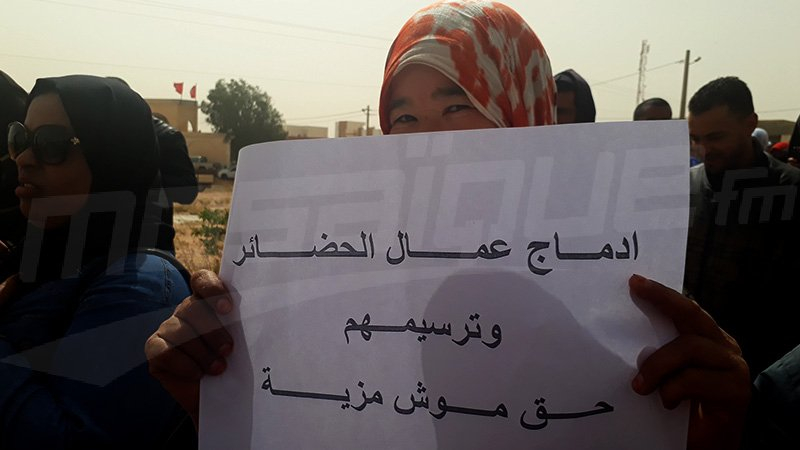 ادماج عمال الحضائر
وترسيمهم
حق موش مزية
mosaique fm